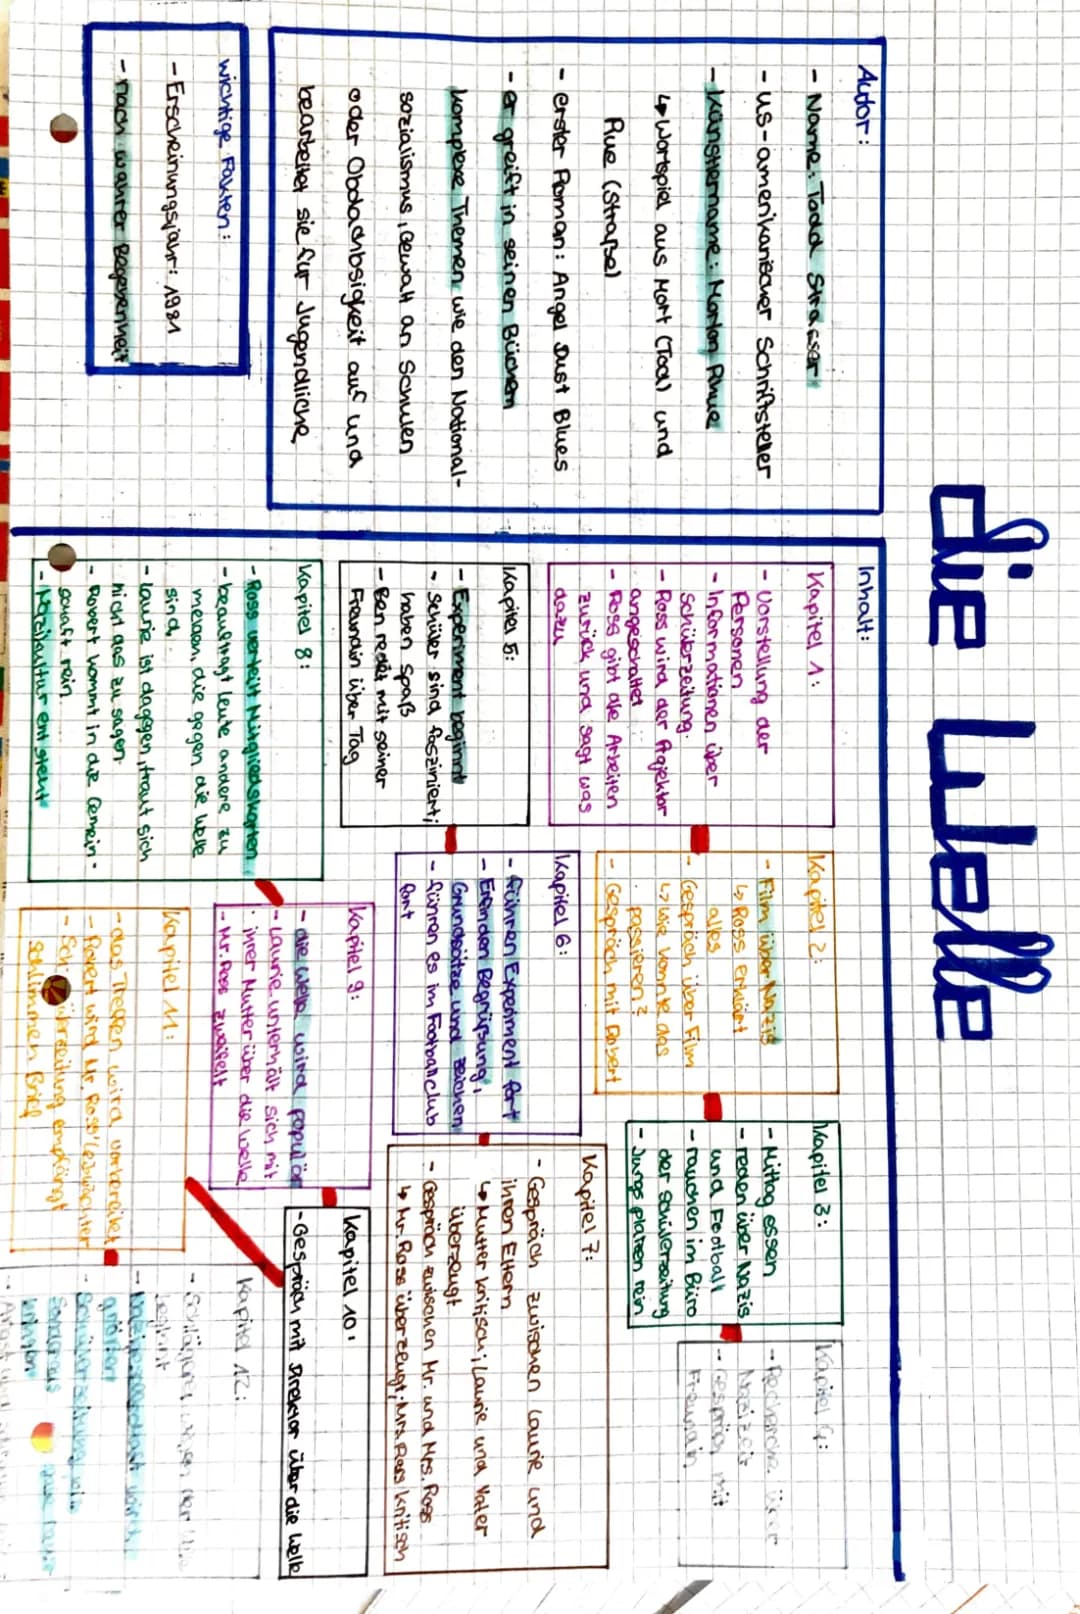 die Welle
Autor:
- Name: Todd Strasser
- US-amerikanischer Schriftsteller
- Künstlername: Morton Rhue
↳ Wortspiel aus Mort (Tod) und
Rue (Straße)
- erster Roman: Angel Dust Blues
- er greift in seinen Büchern
komplexe Themen wie den National-
sozialismus, Gewalt an Schulen
oder Obdachlosigkeit auf und
bearbeitet sie für Jugendliche
wichtige Fakten:
- Erscheinungsjahr: 1981
- nach wahrer Begebenheit
Inhalt:
Kapitel 1:
- Vorstellung der
Personen
- Informationen über
Schülerzeitung
- Ross wird der Projektor
angeschaltet
- Ross gibt die Arbeiten
zurück und sagt was
dazu
Kapitel 2:
- Film über Nazis
↳ Ross erklärt
alles
- Gespräch über Film
↳ wie konnte das
passieren?
- Gespräch mit Robert
Kapitel 3:
- Mittag essen
- reden über Nazis
und Football
- rauchen im Büro
der Schülerzeitung
- Jungs platzen rein
Kapitel 4:
- Recherche über
Nazizeit
- Gespräch mit
Freundin
Kapitel 5:
- Experiment beginnt
- Schüler sind fasziniert;
haben Spaß
- Ben redet mit seiner
Freundin über Tag
Kapitel 6:
- führen Experiment fort
- Erfinden Begrüßung,
Grundsätze und zeichen
- führen es im Footballclub
fort
Kapitel 7:
- Gespräch zwischen Laurie und
ihren Eltern
↳ Mutter kritisch; Laurie und Vater
überzeugt
- Gespräch zwischen Mr. und Mrs. Ross
↳ Mr. Ross überzeugt; Mrs. Ross kritisch
Kapitel 8:
- Ross verteilt Mitgliedskarten
- beauftragt leute andere zu
melden, die gegen die Welle
sind
- Laurie ist dagegen, traut sich
nicht das zu sagen
- Robert kommt in die Gemein-
schaft rein
- Nazikultur entsteht
Kapitel 9:
- die Welle wird populär
- Laurie unterhält sich mit
ihrer Mutter über die Welle
- Mr. Ross zweifelt
Kapitel 10:
- Gespräch mit Direktor über die Welle
Kapitel 11:
- das Treffen wird vorbereitet
- Robert wird Mr. Ross'
- Schülerzeitung empfängt
schlimmen Brief
Kapitel 12:
- Schlägerei wegen der Welle
beginnt
- Nazigesellschaft wird
größer
- Schülerzeitung